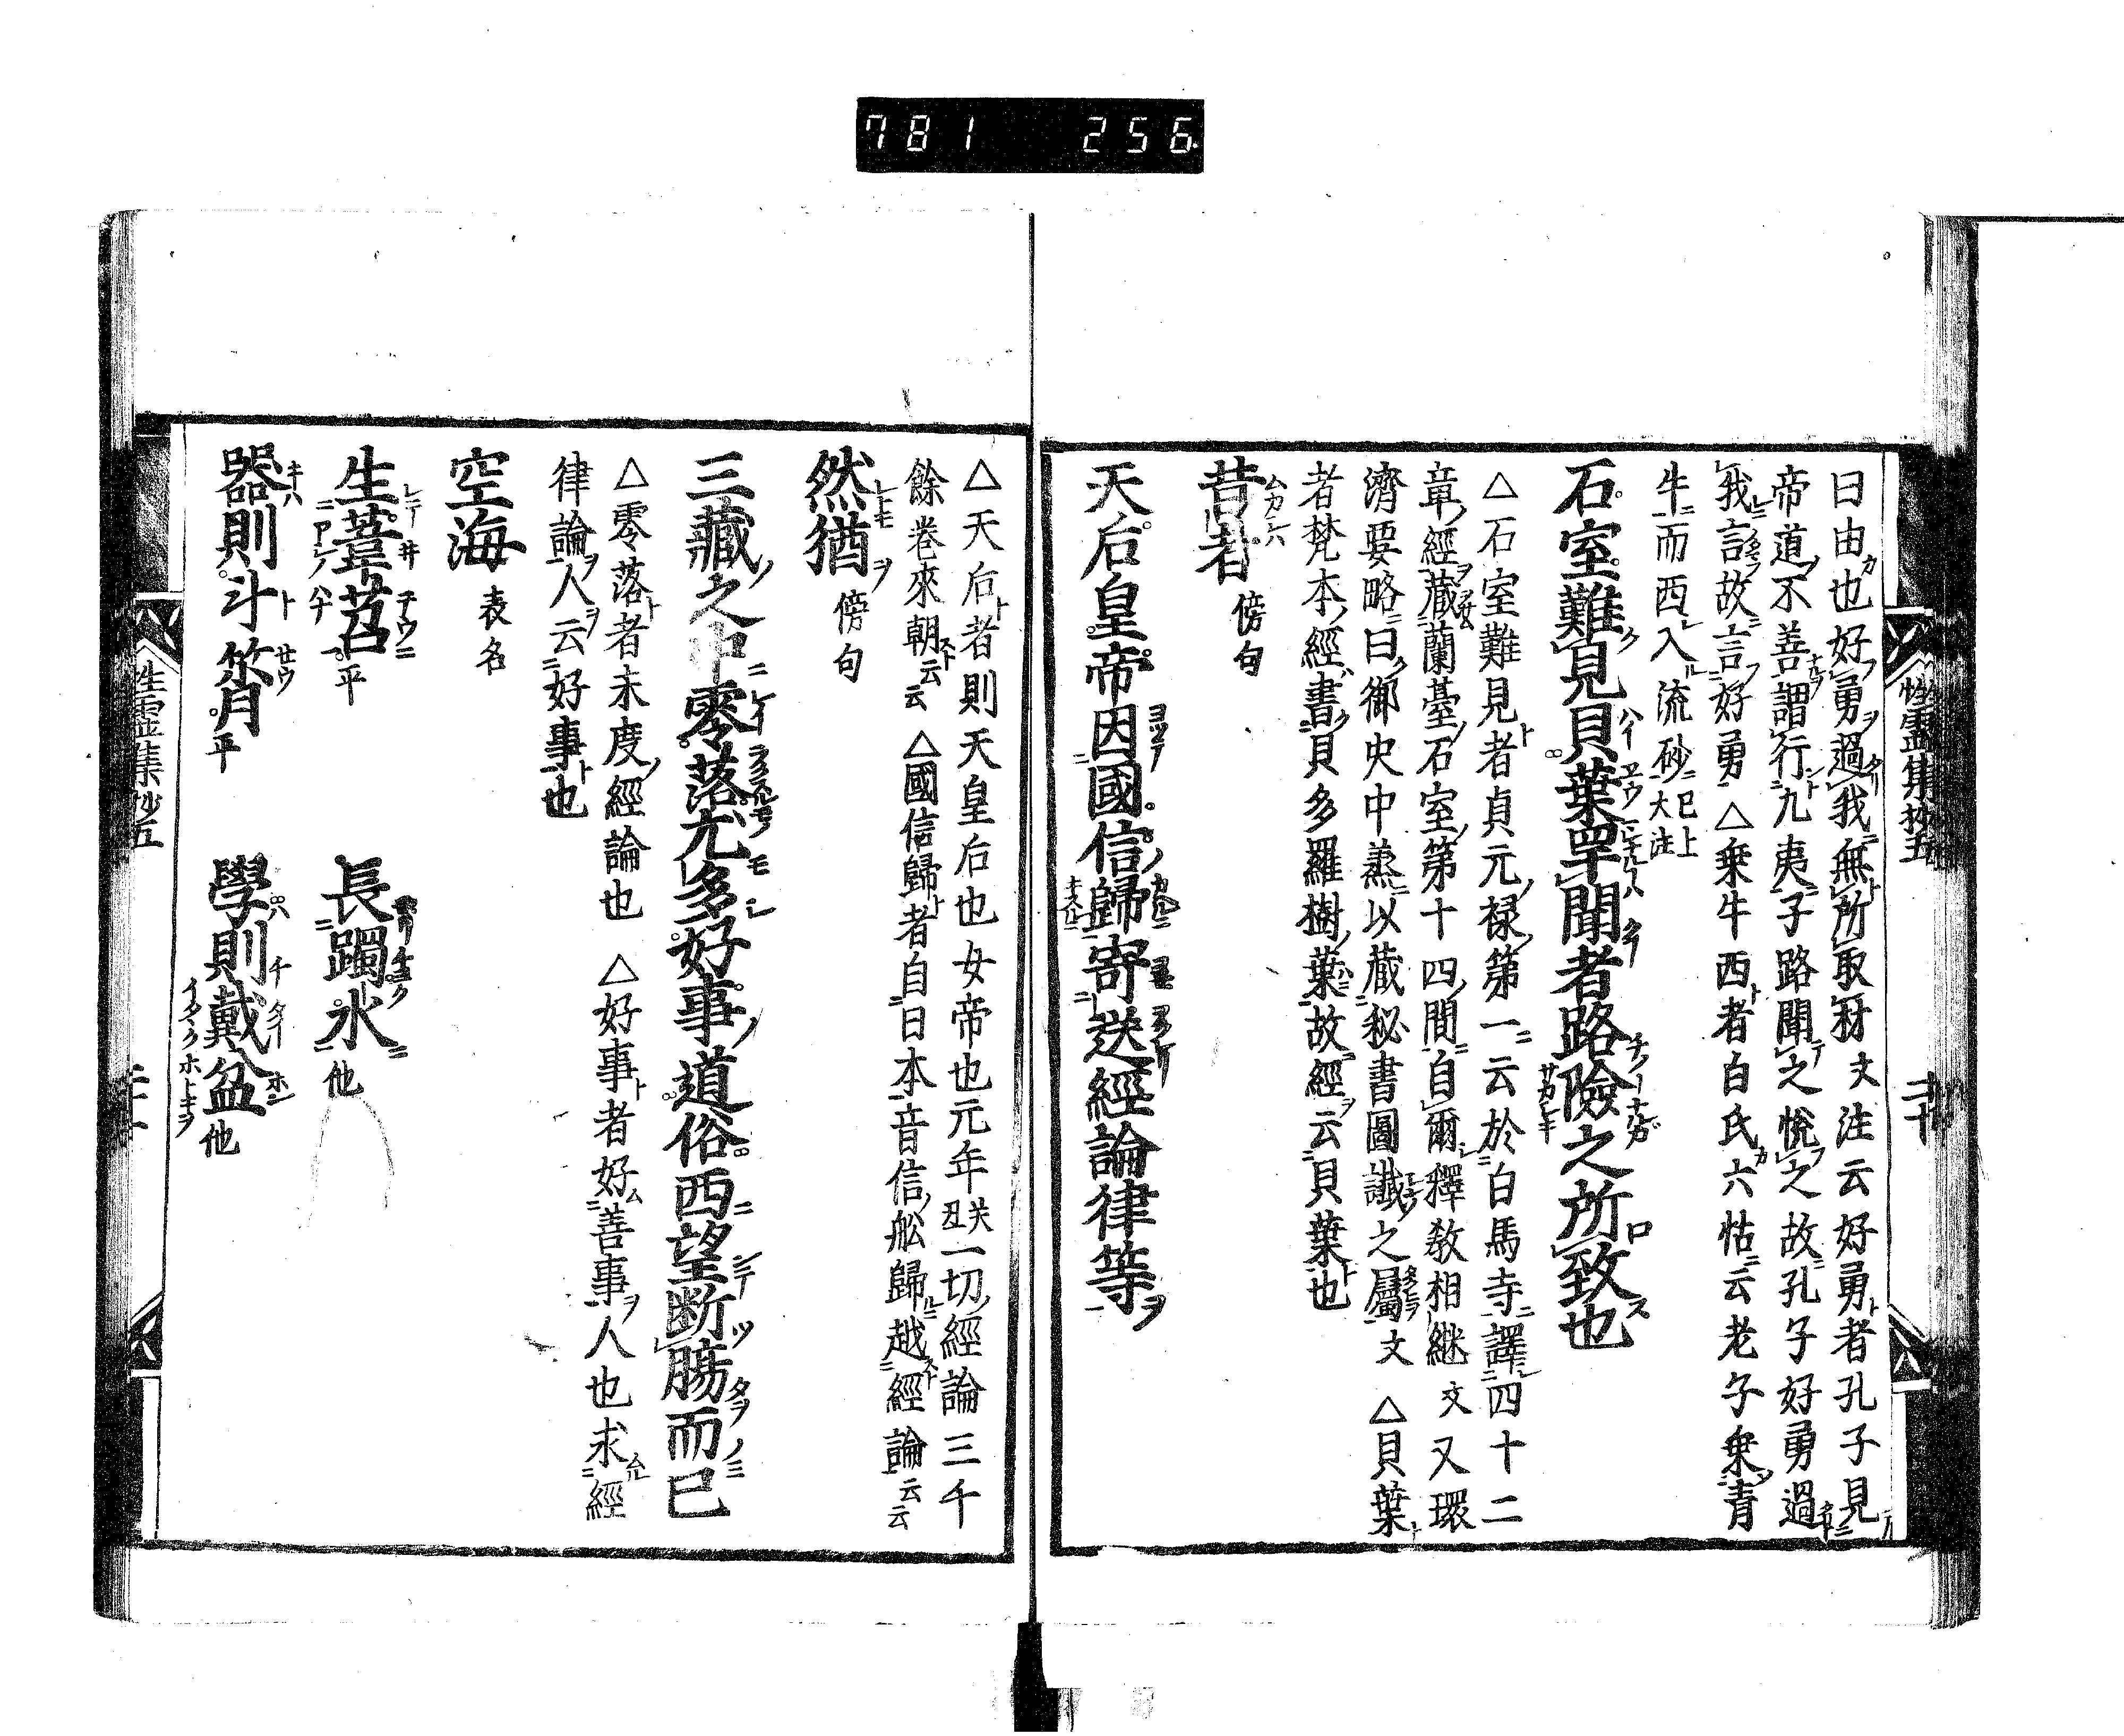 781 256
曰由也好勇過我無所取材文注云好勇者孔子見
帝道不善謂行九夷子路聞之悅之故孔子好勇過
我言故言好勇△乗牛西者白氏六怗云老子乗青
牛而西入流砂已上大注
石室難見貝葉罕聞者路險之所致也
△石室難見者貞元禄第一云於白馬寺譯四十二
章經藏蘭臺石室第十四間自爾釋教相継文又環
濟要略曰御史中烝以藏秘書圖讖之屬文△貝葉
者梵本經書貝多羅樹葉故經云貝葉也
昔者傍句
天后皇帝因國信歸寄送經論律等
△天后者則天皇后也女帝也元年癸丑一切經論三千
餘巻來朝云云△國信歸者自日本音信舩歸越經論云云
然猶傍句
三藏之中零落尤多好事道俗西望断腸而已
△零落者未度經論也△好事者好善事人也求經
律論人云好事也
空海表名
生葦苕平 長躅氷他
器則斗筲平 學則戴盆他
性霊集抄五